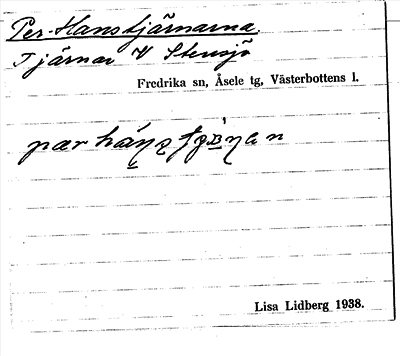 Per-Hanstjärnarna.
Tjärnar V Stensjö
Fredrika sn, Åsele tg, Västerbottens l.
Lisa Lidberg 1938.